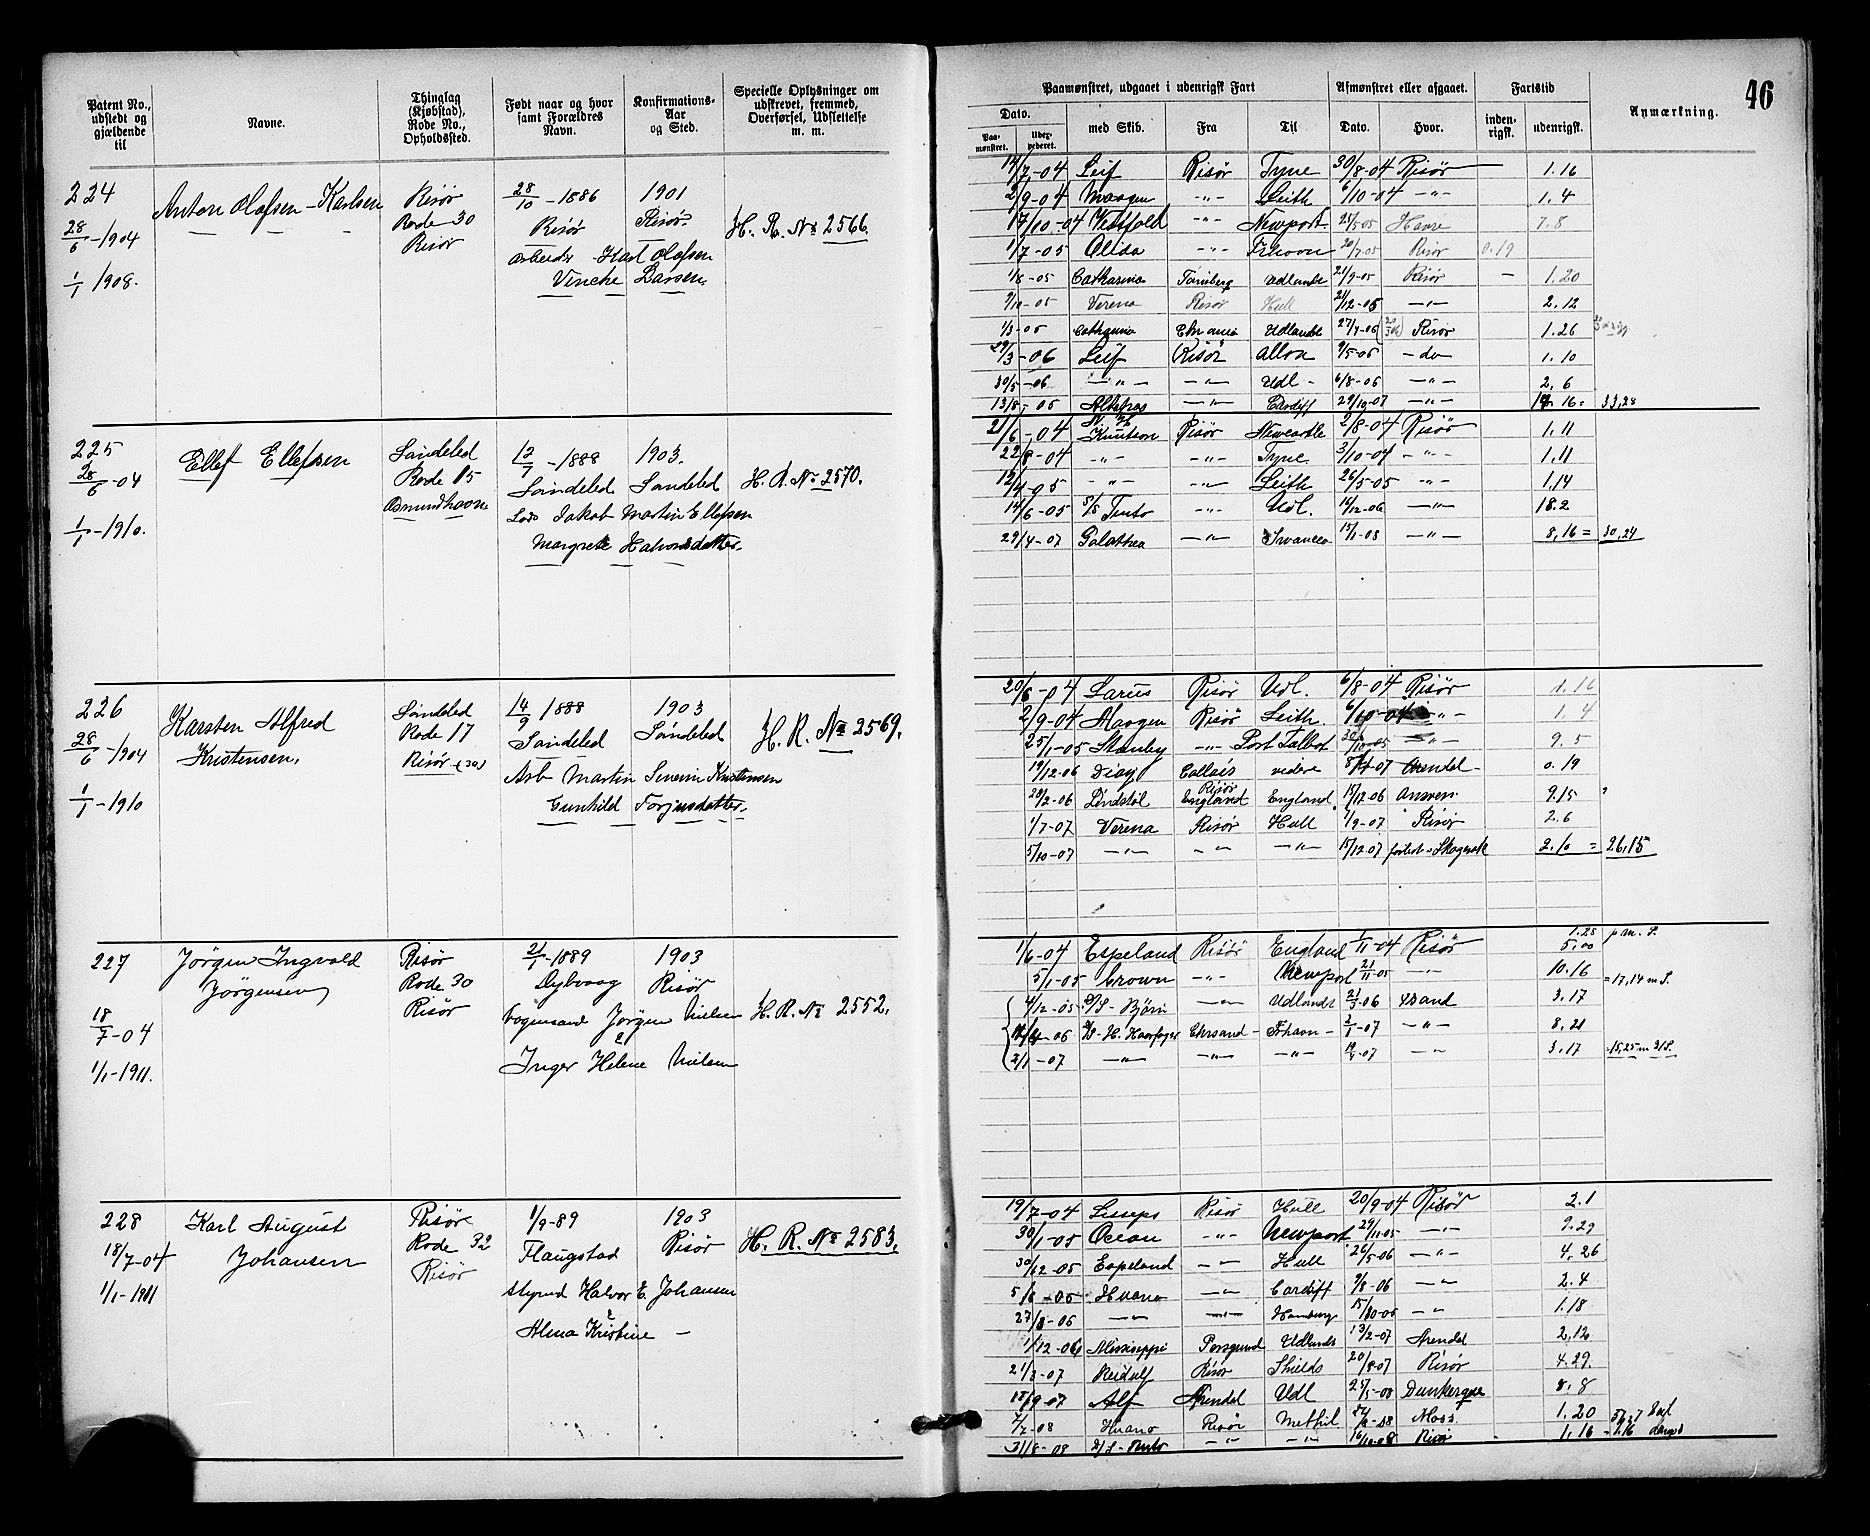 46
Patent No., udstedt og gjældende til
Navne.
Thinglag (Kjøbstad), Rode No., Opholdssted.
Født naar og hvor samt Forældres Navn.
Konfirmations-Aar og Sted.
Specielle Oplysninger om udskrevet, fremmed, Overførsel, Udslettelse m. m.
Paamønstret, udgaaet i udenrigsk Fart
Dato.
Paa-mønstret.
med Skib.
Fra
Til
Afmønstret eller afgaaet.
Dato.
Hvor.
Fartstid
inden-rigsk.
udenrigsk.
Anmærkning.
224
28/6-1904
1/1 1908.
Anton Olafsen-Karlsen
Risör
Rode 30
Risör
28/10-1886
Risör
Arbeidr Karl Olafsen
Vincke Larsen.
1901
Risör
H. R. No 2566.
14/7-04 Leif Risör Tyne 30/8-04 Risör 1.16
2/9-04 -"- Leith 6/10-04 -"- 1.4
17/10-04 Vestfold -"- Newport 25/5-05 Havre 7.8
1/7-05 Alida -"- 20/7-05 Risör 0.19
1/8-05 Catharina Tönsberg Udlandet 21/9-05 Risör - 1.20
9/10-05 Verena Risör Hull 21/12-05 -"- 2.12
Udlandet Risör 1.26
29/3-06 Leif Risör Alloa 9/5-06 -do 1.10
30/5-06 -"- -"- Udl- 6/8-06 -"- 2.6
13/8-06 -"- Cardiff -"- 33,28
225
28/6-04
1/1-1910.
Ellef Ellefsen
Söndeled
Rode 15
Osmundhavne
12/7-1888
Söndeled
Lods Jakob Martin Ellefsen
Margrete Halvorsdatter.
1903.
Söndeled
H. R. No 2570.
21/6-04 Knutson Risör Newcastle 2/8-04 Risör 1.11
22/8-04 -"- -"- Tyne 3/10-04 -"- 1.11
12/4-05 -"- -"- Leith 26/5-05 -"- 1.14
14/6-05 S/S Tento -"- Udl. 14/12-06 -"- 18.2
29/4-07 Galathea -"- 15/1-08 -"- 8,16 = 30,24
226
28/6-1904
1/1-1910
Karsten Alfred
Kristensen,
Söndeled
Rode 17
Risör (30)
14/9 1888
Söndeled
Arb Martin Severin Kristensen
Gunhild Torjusdatter.
1903
Söndeled
H. R. No 2569.
20/6-04 Larus Risör Udl. 6/8-04 Risör 1.16
2/9-04 Risör Leith 6/10-04 -"- 1.4
25/1-05 Stanley -"- Port Talbot -"- 9.5
19/12-06 Callais videre Arendal 0.19
20/2-06 Lindstöl Risör England England 15/12-06 9.15
1/7-07 Verena Risör Hull 1/9-07 Risör 2.6
5/10-07 -"- -"- -"- 15/12-07 forlist i Skagerak 2.10 = 26,15
227
18/7-04
1/1-1911.
Jörgen Ingvald
Jörgensen
Risör
Rode 30
Risör
21/1-1889
Dybvaag
Jörgen Nielsen
Inger Helene Nielsen
1903
Risör
H. R. No 2552.
1/6-04 Espeland Risör England 1/11-04 Risör 1.28 5.00
5/1-05 Crown -"- Newport 21/11-05 -"- 10.16 =17,14 m S.
4/12-05 D/S- Björn -"- Udlandet 21/3-06 3.17
-06 -"- -07 -"- 8.21
2/1-07 -"- -"- -"- 19/4-07 -"- 3.17
228
18/7-04
1/1-1911
Karl August
Johansen
Risör
Rode 32
Risör
1/9-89
Flaugstad
Styrmd Halvor E. Johansen
Alma Kristine -
1903
Risör
H. R. No 2583.
19/7-04 Lesseps Risör Hull 20/9-04 Risör 2.1
30/1-05 Ocean -"- Newport 29/11-05 -"- 9.29
30/12-05 Espeland -"- Hull 26/5-06 -"- 4.26
5/6-06 Huano -"- Cardiff 9/8-06 -"- 2.4
27/8-06 -"- -"- Hamburg 15/10-06 -"- 1.18
1/12-06 Mississippi Porsgrund Udlandet 13/2-07 Arendal 2,12
21/3-07 Heidulf Risör Shields 20/8-07 Risör 4.29.
Alf Arendal Udl 25/5-08 Dunkerque 8.8
Huano Risör Methil Moss. 1.20
31/8-08 S/S-Tento -"- -"- 16/10-08 Risör 1.16